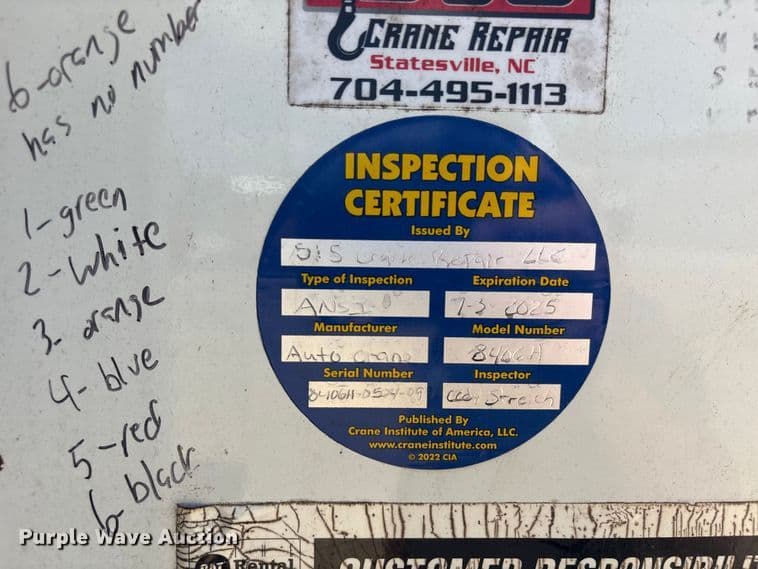 6-orange
has no number
1-green
2-white
3-orange
4-blue
5-red
6-black
CRANE REPAIR
Statesville, NC
704-495-1113
INSPECTION
CERTIFICATE
Issued By
LLC
Type of Inspection
Expiration Date
ANSI
2025
Manufacturer
Model Number
Auto Crane
Serial Number
Inspector
Published By
Crane Institute of America, LLC.
www.craneinstitute.com
© 2022 CIA
Purple Wave Auction
Rental
CUSTOMER RESPONSIBILIT